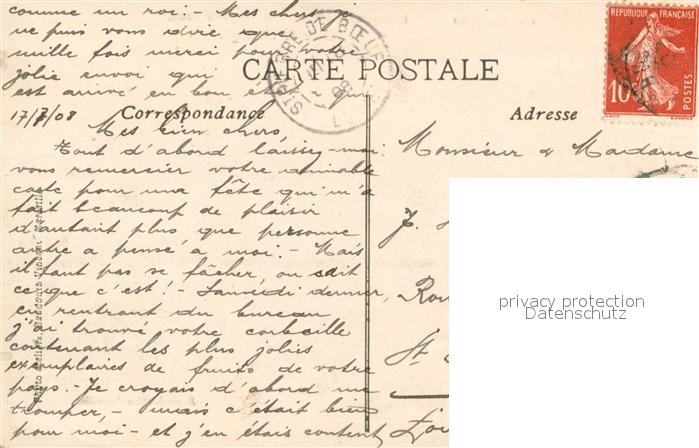 comme un roi. - Mes chers je
ne puis vous dire que
mille fois merci pour votre
joli envoi qui
est arrivé en bon état qui
CARTE POSTALE
17/7/08 Correspondance
Adresse
RÉPUBLIQUE FRANÇAISE
10
POSTES
ST PIERRE DE BŒUF
Mes bien chers
Tout d'abord laissez-moi
vous remercier votre aimable
carte pour ma fête qui m'a
fait beaucoup de plaisir
d'autant plus que personne
autre a pensé à moi. - Mais
il faut pas se fâcher, on sait
ce que c'est! - Samedi dernier,
en rentrant du bureau
j'ai trouvé votre corbeille
contenant les plus jolies
exemplaires de fruits de votre
pays. - Je croyais d'abord me
tromper, - mais c'était bien
pour moi - et j'en étais content
Monsieur & Madame
J.
Rou
St.
Loi
privacy protection
Datenschutz